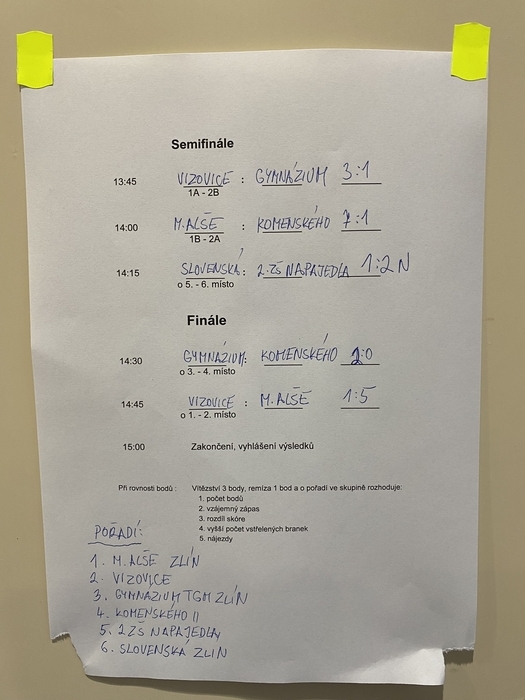 Semifinále
13:45 VIZOVICE : GYMNÁZIUM 3:1
1A - 2B
14:00 M.ALŠE : KOMENSKÉHO 7:1
1B - 2A
14:15 SLOVENSKÁ : 2.ZŠ NAPAJEDLA 1:2 N
o 5. - 6. místo
Finále
14:30 GYMNÁZIUM : KOMENSKÉHO 2:0
o 3. - 4. místo
14:45 VIZOVICE : M.ALŠE 1:5
o 1. - 2. místo
15:00 Zakončení, vyhlášení výsledků
Při rovnosti bodů : Vítězství 3 body, remíza 1 bod a o pořadí ve skupině rozhoduje:
1. počet bodů
2. vzájemný zápas
3. rozdíl skóre
4. vyšší počet vstřelených branek
5. nájezdy
POŘADÍ:
1. M.ALŠE ZLÍN
2. VIZOVICE
3. GYMNAZIUM TGM ZLÍN
4. KOMENSKÉHO II
5. 2ZŠ NAPAJEDLA
6. SLOVENSKÁ ZLÍN